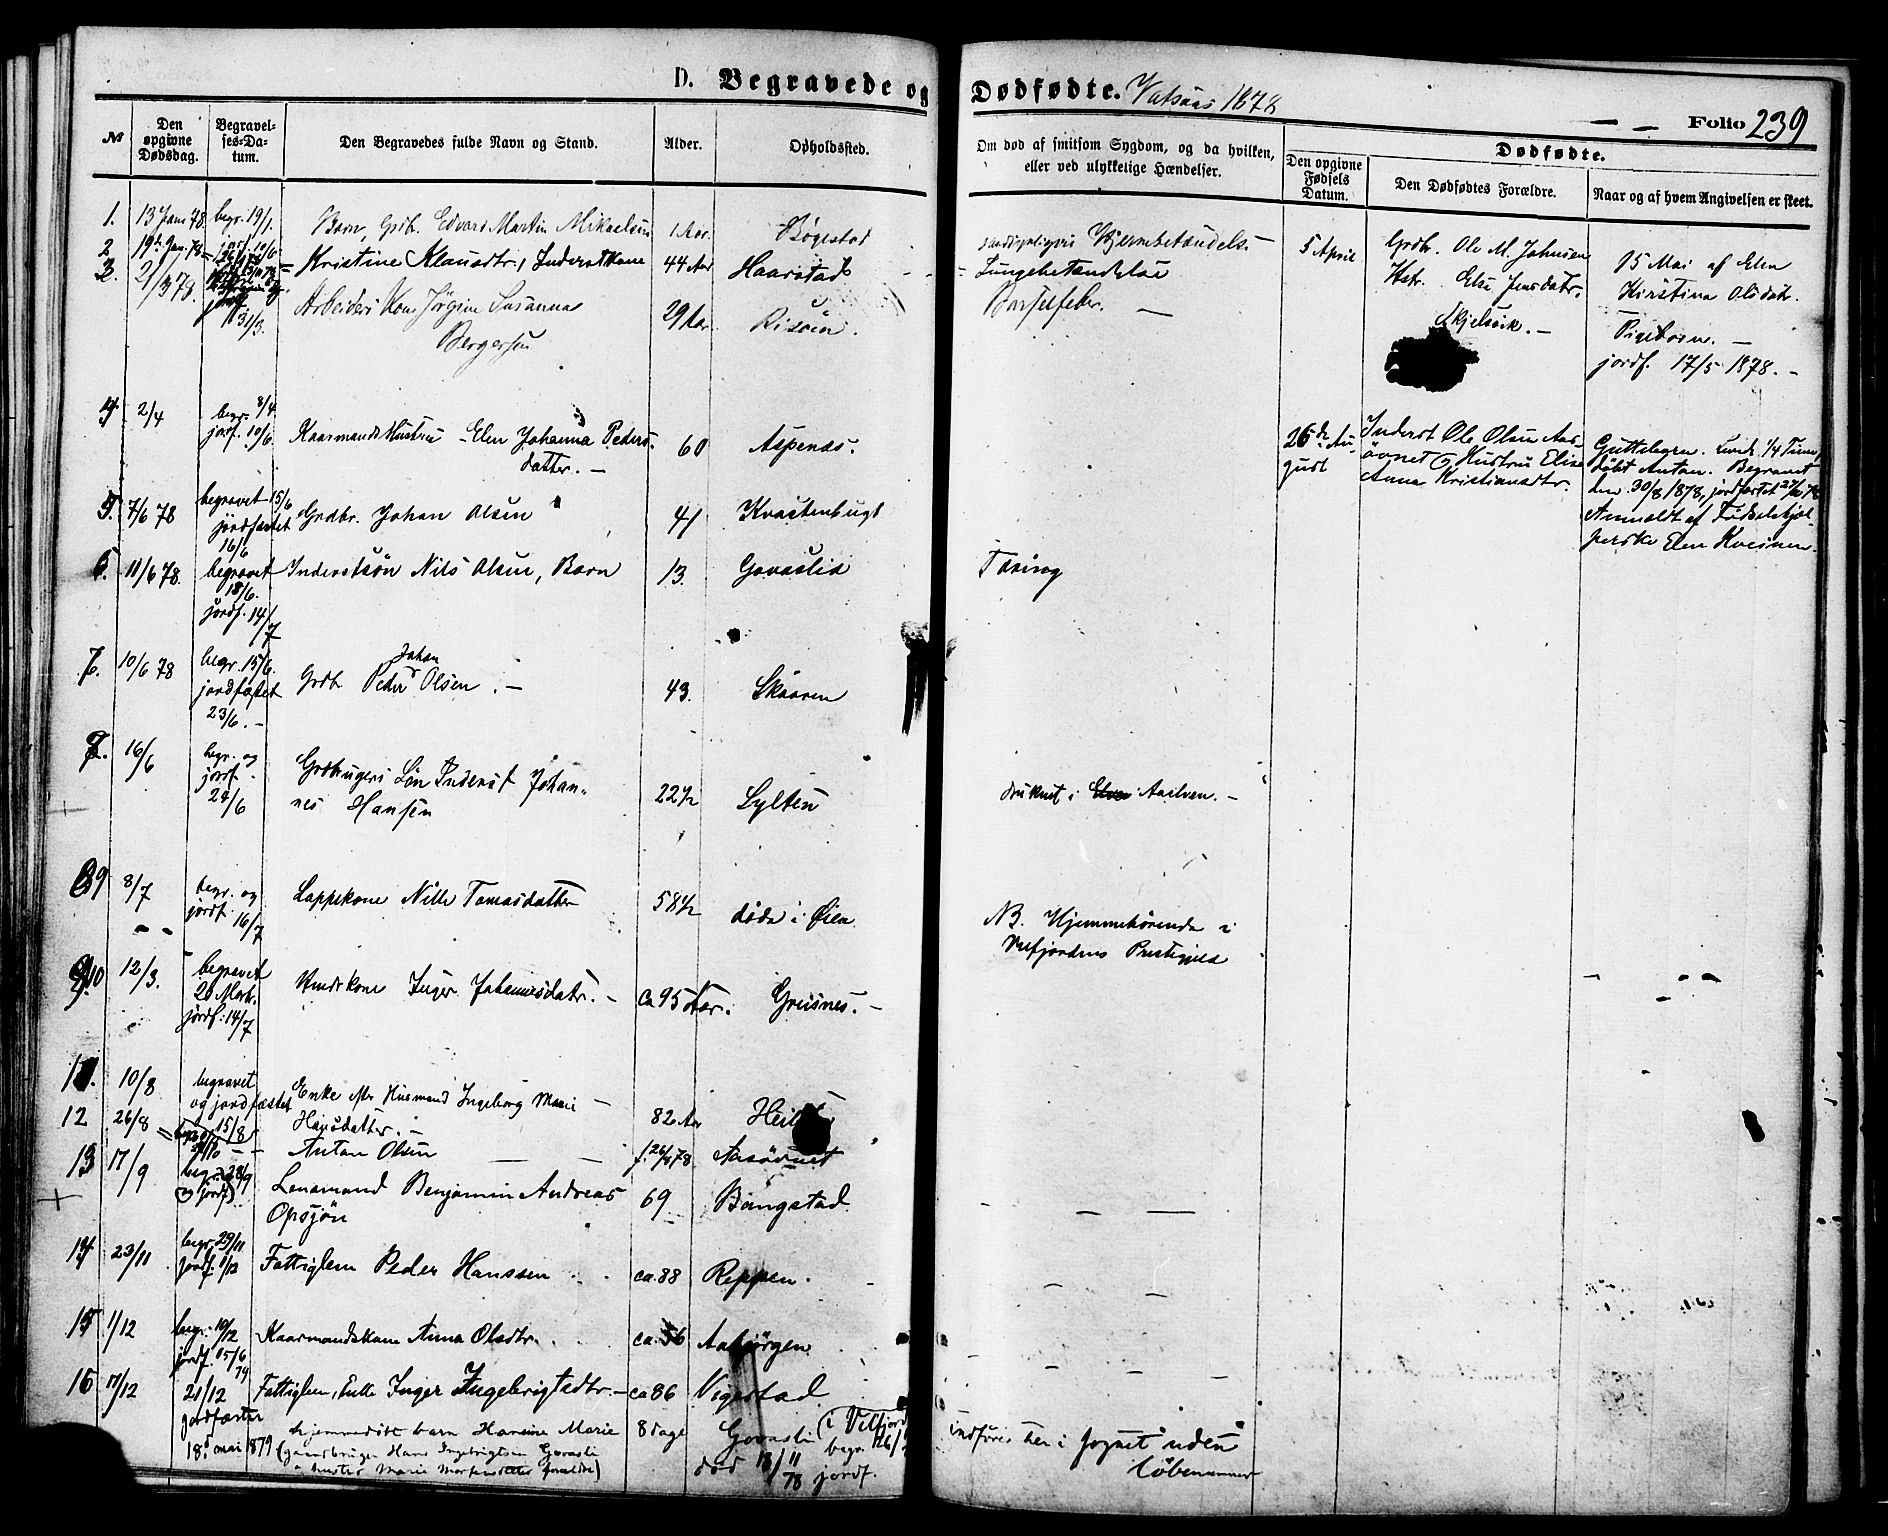 D. Begravede og Dødfødte. Vatsaas 1878
Folio 239
№
Den opgivne Dødsdag.
Begravelses-Datum.
Den Begravedes fulde Navn og Stand.
Alder.
Opholdssted.
Om død af smitsom Sygdom, og da hvilken, eller ved ulykkelige Hændelser.
Dødfødte.
Den opgivne Fødsels Datum.
Den Dødfødtes Forældre.
Naar og af hvem Angivelsen er skeet.
1. 13 Jan 78. begr. 19/1. Barn, Grdb. Edvard Martin Mikaelsen 1 Aar. Bøgestad Hjernebetændelse
2 19de Jan. 78 Kristine Klausdtr., Inderstkone 44 Aar Haarstad Lungebetændelse
3. 21/3 78. 31/3. Arbeiders Kone Jørgine Susanna
Bergersen 29 Aar Risøen. Barselfeber. —
5 April Grdbr. Ole M. Johnsen
Hstr. Else Jensdatr.
15 Mai af Elen
Kirstina Olsdatr.
Pigebarn. —
jordf. 17/5 1878. —
4 2/4 begr. 8/4
jorf. 10/6. Kaarmands Hustru Elen Johanna Peders-
datter. — 60 Aspenæs.
26de Au-
gust
Inderst Ole Olsen Aas-
øvnet og Hustru Elise
Anna Kristiansdtr.
Guttebarn. Levede 1/4 Time,
døbt Anton. Begravet
den 30/8 1878, jordfæstet
Anmeldt af Fødselshjæl-
perske Elen
5. 7/6 78 begravet 15/6
jordfæstet
16/6 Grdbr. Johan Olsen 41 Kvastenbugt
6. 11/6 78. begravet
18/6.
jordf. 14/7 Inderstsøn Nils Olsen, Barn 13. Govaslid Tæring
7. 10/6 78 begr. 15/6.
jordfæstet
23/6. — Grdb. Peder Johan Olsen. — 43. Skaaren
16/6 begr. og
jordf.
24/6 Grdbrugers Søn Inderst Johan-
nes Hansen 22 1/2 Sylten druknet i Elven Aaelven. —
9 8/7 begr. og
jordf.
16/7 Lappekone Nille Tomasdatter 58 1/2 døde i Øien NB. Hjemmehørende i
Vefjordens Prestegjeld
10 12/3. begravet
20 Marts.
jordf. 14/7 Inger Johannesdatr. — ca 95 Aar. Greisnes. —
11. 10/8 begravet
og jordfæstet
15/8 Enke efter Husmand Ingeborg Marie
Hansdatter. — 82 Aar
12 26/8 Anton Olsen f. 26/8 78 Aasøvnet
13 17/9 begr. 28/9
og jordf. Lensmand Benjamin Andreas
Opsjøn 69 Bangstad
14 23/11 begr. 29/11
jordf. 1/12 Fattiglem Peder Hanssen ca. 88 Reppen.
15 1/12 begr. 10/12
jordf. 15/6 79 Kaarmandskone Anna Olsdtr. ca. 56 Aabjørgen
16 17/12 21/12
jordfæstet
18de mai 1879 Fattiglem, Enke Inger Ingebrigtsdtr. — ca 86 Vigestad
hjemmedøbt barn Hansine Marie 8 dage Govasli (i Velfjord
(gaardbruger Hans Ingebrigtsen Govasli
Hustru Marie Mortensdatter forældre) død 18/11 78 begr.
jordf.
indføres her i Sognet uden
løbenummer